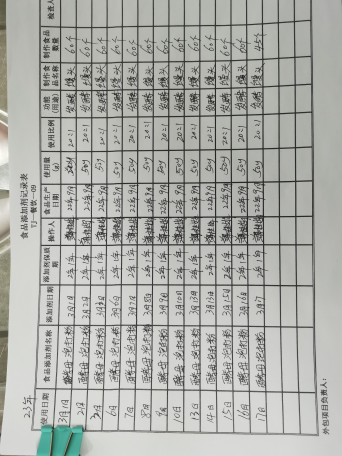 食品添加剂记录表
TJ—餐饮—09
23年
使用日期 食品添加剂名称 添加剂日期 添加剂保质期 操作人 食品生产日期 使用量(g) 使用比例 功能(用途) 制作食品名称 制作食品数量 检查人
3月1日 酵母 泡打粉 3月1日 2年 1年 22年9月 50g 20:1 发酵 馒头 60个
2日 酵母 泡打粉 3月2日 2年 1年 22年9月 50g 20:1 发酵 馒头 60个
3日 酵母 泡打粉 2年 1年 22年9月 20:1 发酵 馒头 60个
6日 酵母 泡打粉 3月6日 2年 1年 22年9月 50g 20:1 发酵 馒头 60个
7日 酵母 泡打粉 3月7日 2年 1年 22年9月 50g 20:1 发酵 馒头 60个
8日 酵母 泡打粉 3月8日 2年 1年 22年9月 50g 20:1 发酵 馒头 60个
9日 酵母 泡打粉 3月9日 2年 1年 22年9月 50g 20:1 发酵 馒头 60个
10日 酵母 泡打粉 3月10日 2年 1年 22年9月 50g 20:1 发酵 馒头 60个
13日 酵母 泡打粉 3月13日 2年 1年 22年9月 50g 20:1 发酵 馒头 60个
14日 酵母 泡打粉 2年 1年 22年9月 50g 20:1 发酵 馒头 60个
15日 酵母 泡打粉 3月15日 2年 1年 22年9月 50g 20:1 发酵 馒头 60个
16日 酵母 泡打粉 3月16日 2年 1年 22年9月 50g 20:1 发酵 馒头 60个
17日 酵母 泡打粉 3月17 2年 1年 22年9月 50g 20:1 发酵 馒头 45个
外包项目负责人：